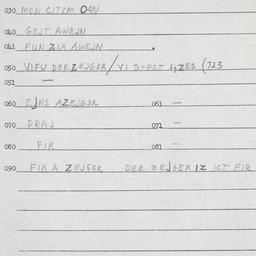 030 MEN CITPM OAN
040 GEJT AWEJN
041 FUN ZIX AWEJN
050 VIFU DEEZEJGER / VI SPET IZES (723
051 —
060 EJNS AZEJGER 061 —
070 DRAJ 071 —
080 FIR 081 —
090 FIR A ZEJGER DER ZEJGER IZ ICT FIR